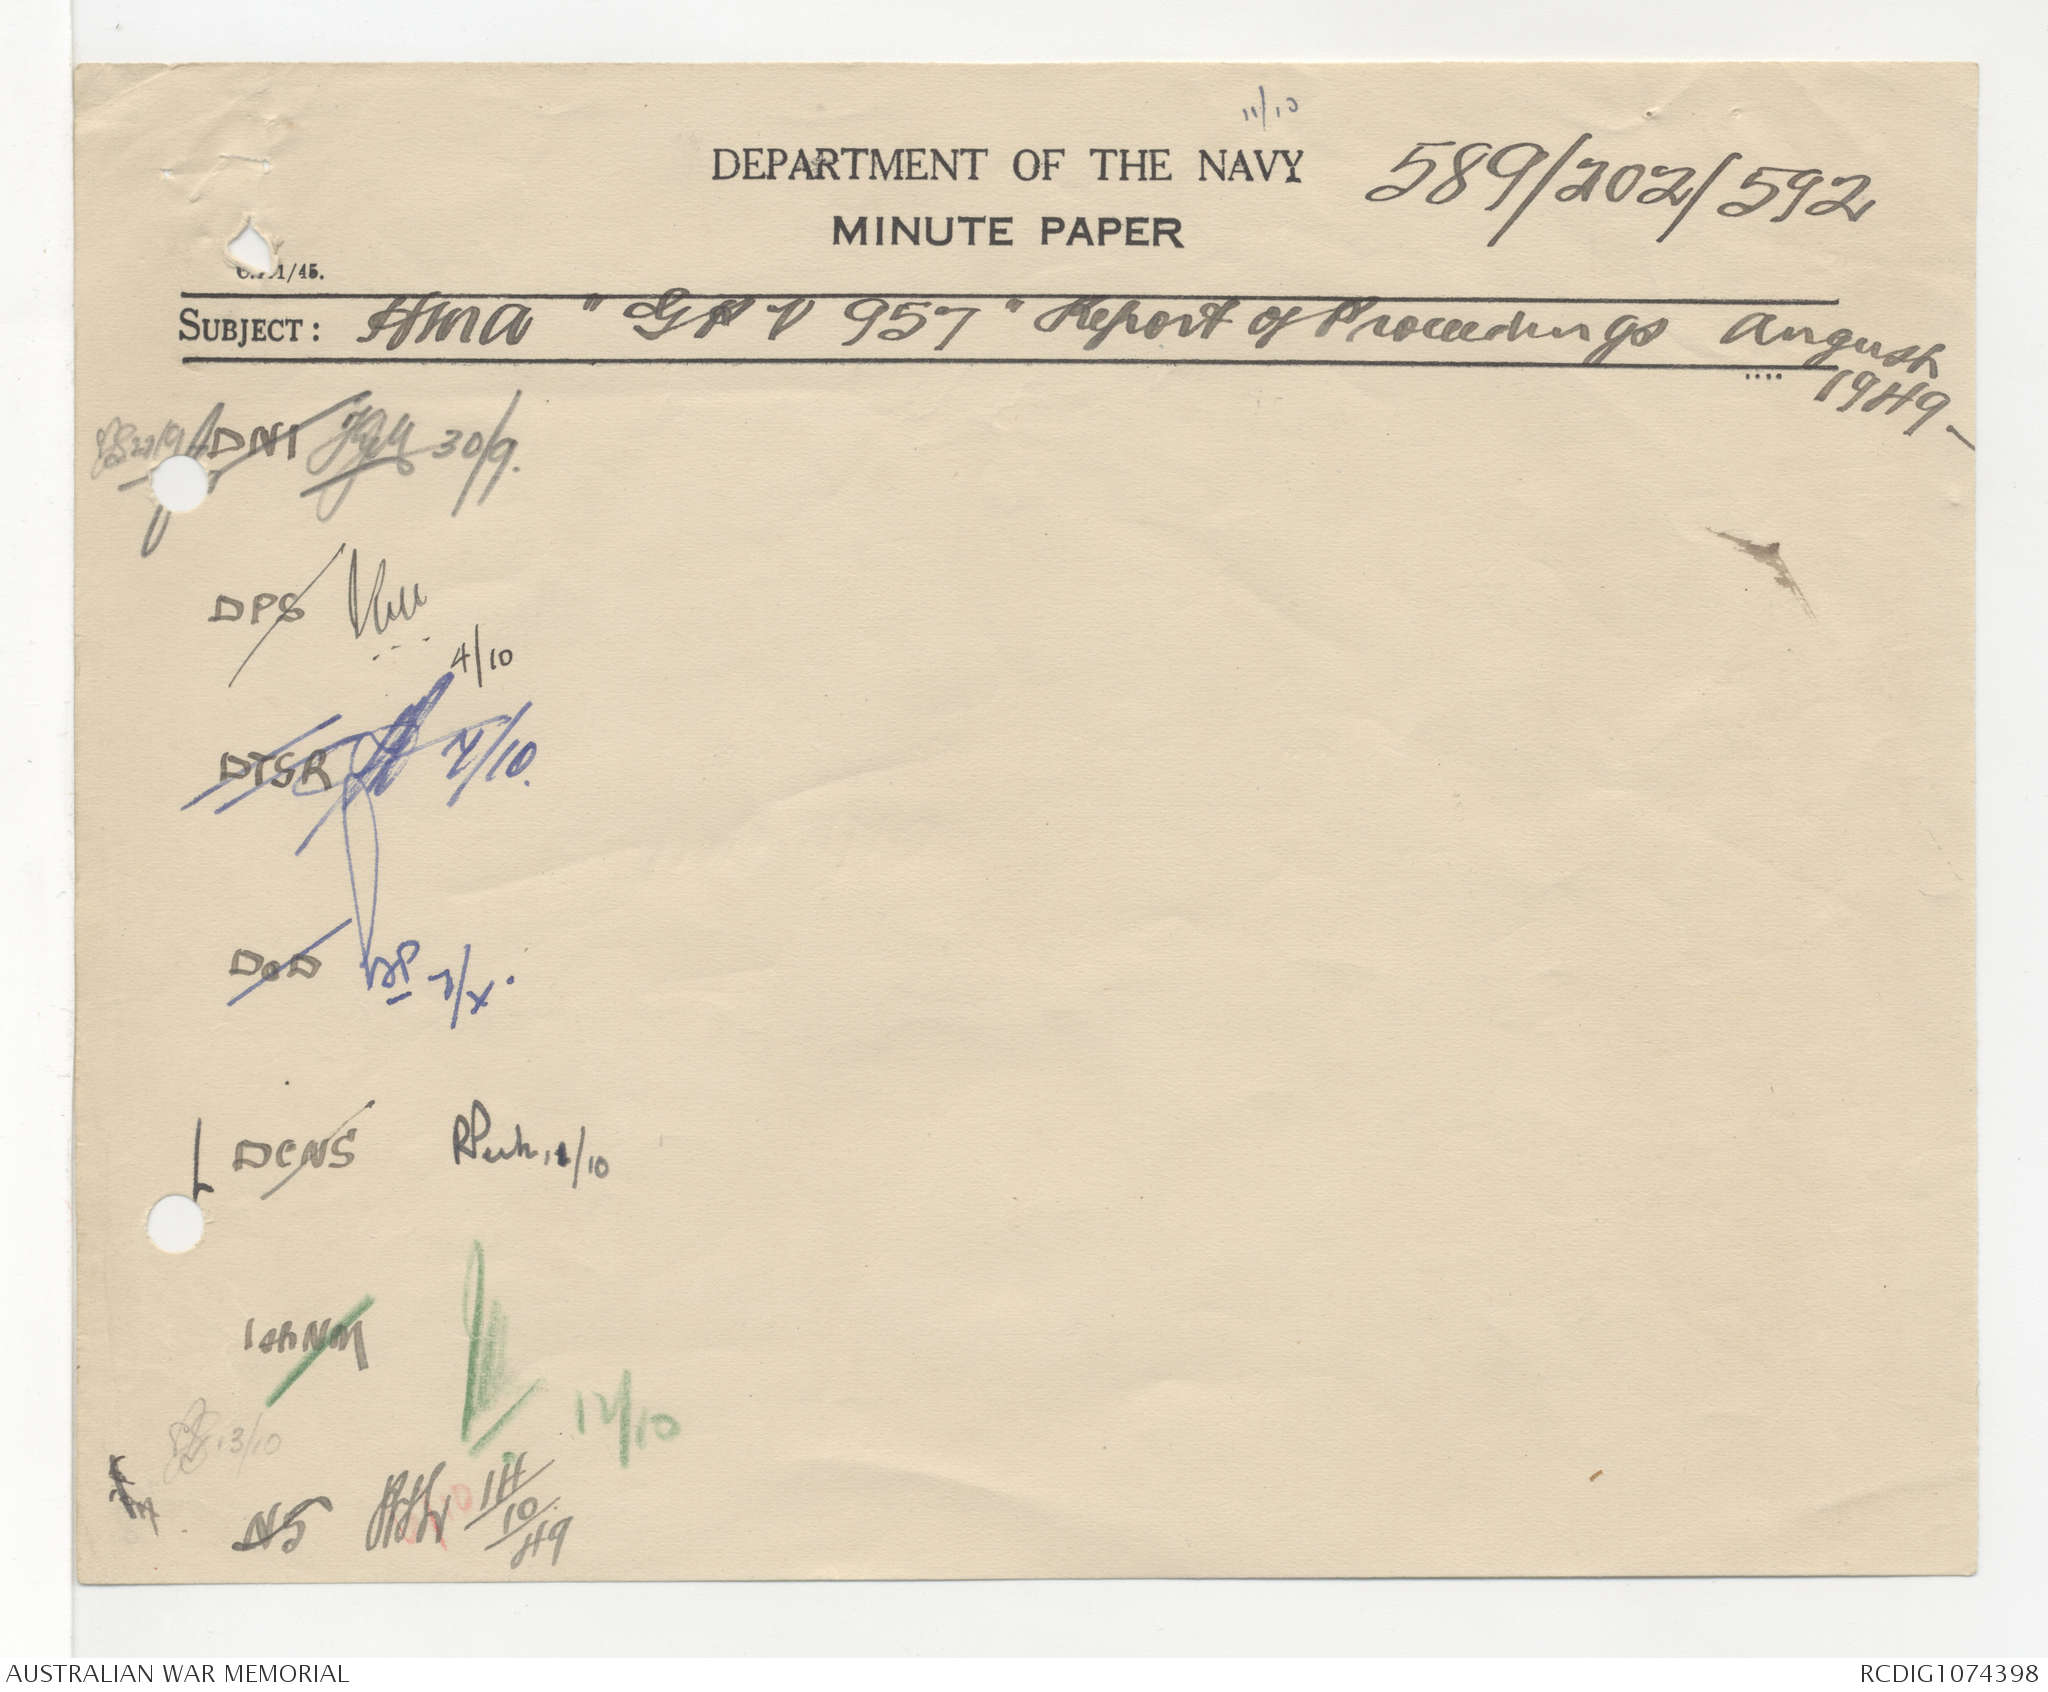 11/10
DEPARTMENT OF THE NAVY 589/202/592
MINUTE PAPER
/45.
SUBJECT: HMA "GPV 957" Report of Proceedings August
1949-
DNI 30/9.
DPS
4/10
DTSR 7/10.
DOD
DCNS 10
1stNM
12/10
13/10
NS 14/10/49
AUSTRALIAN WAR MEMORIAL RCDIG1074398